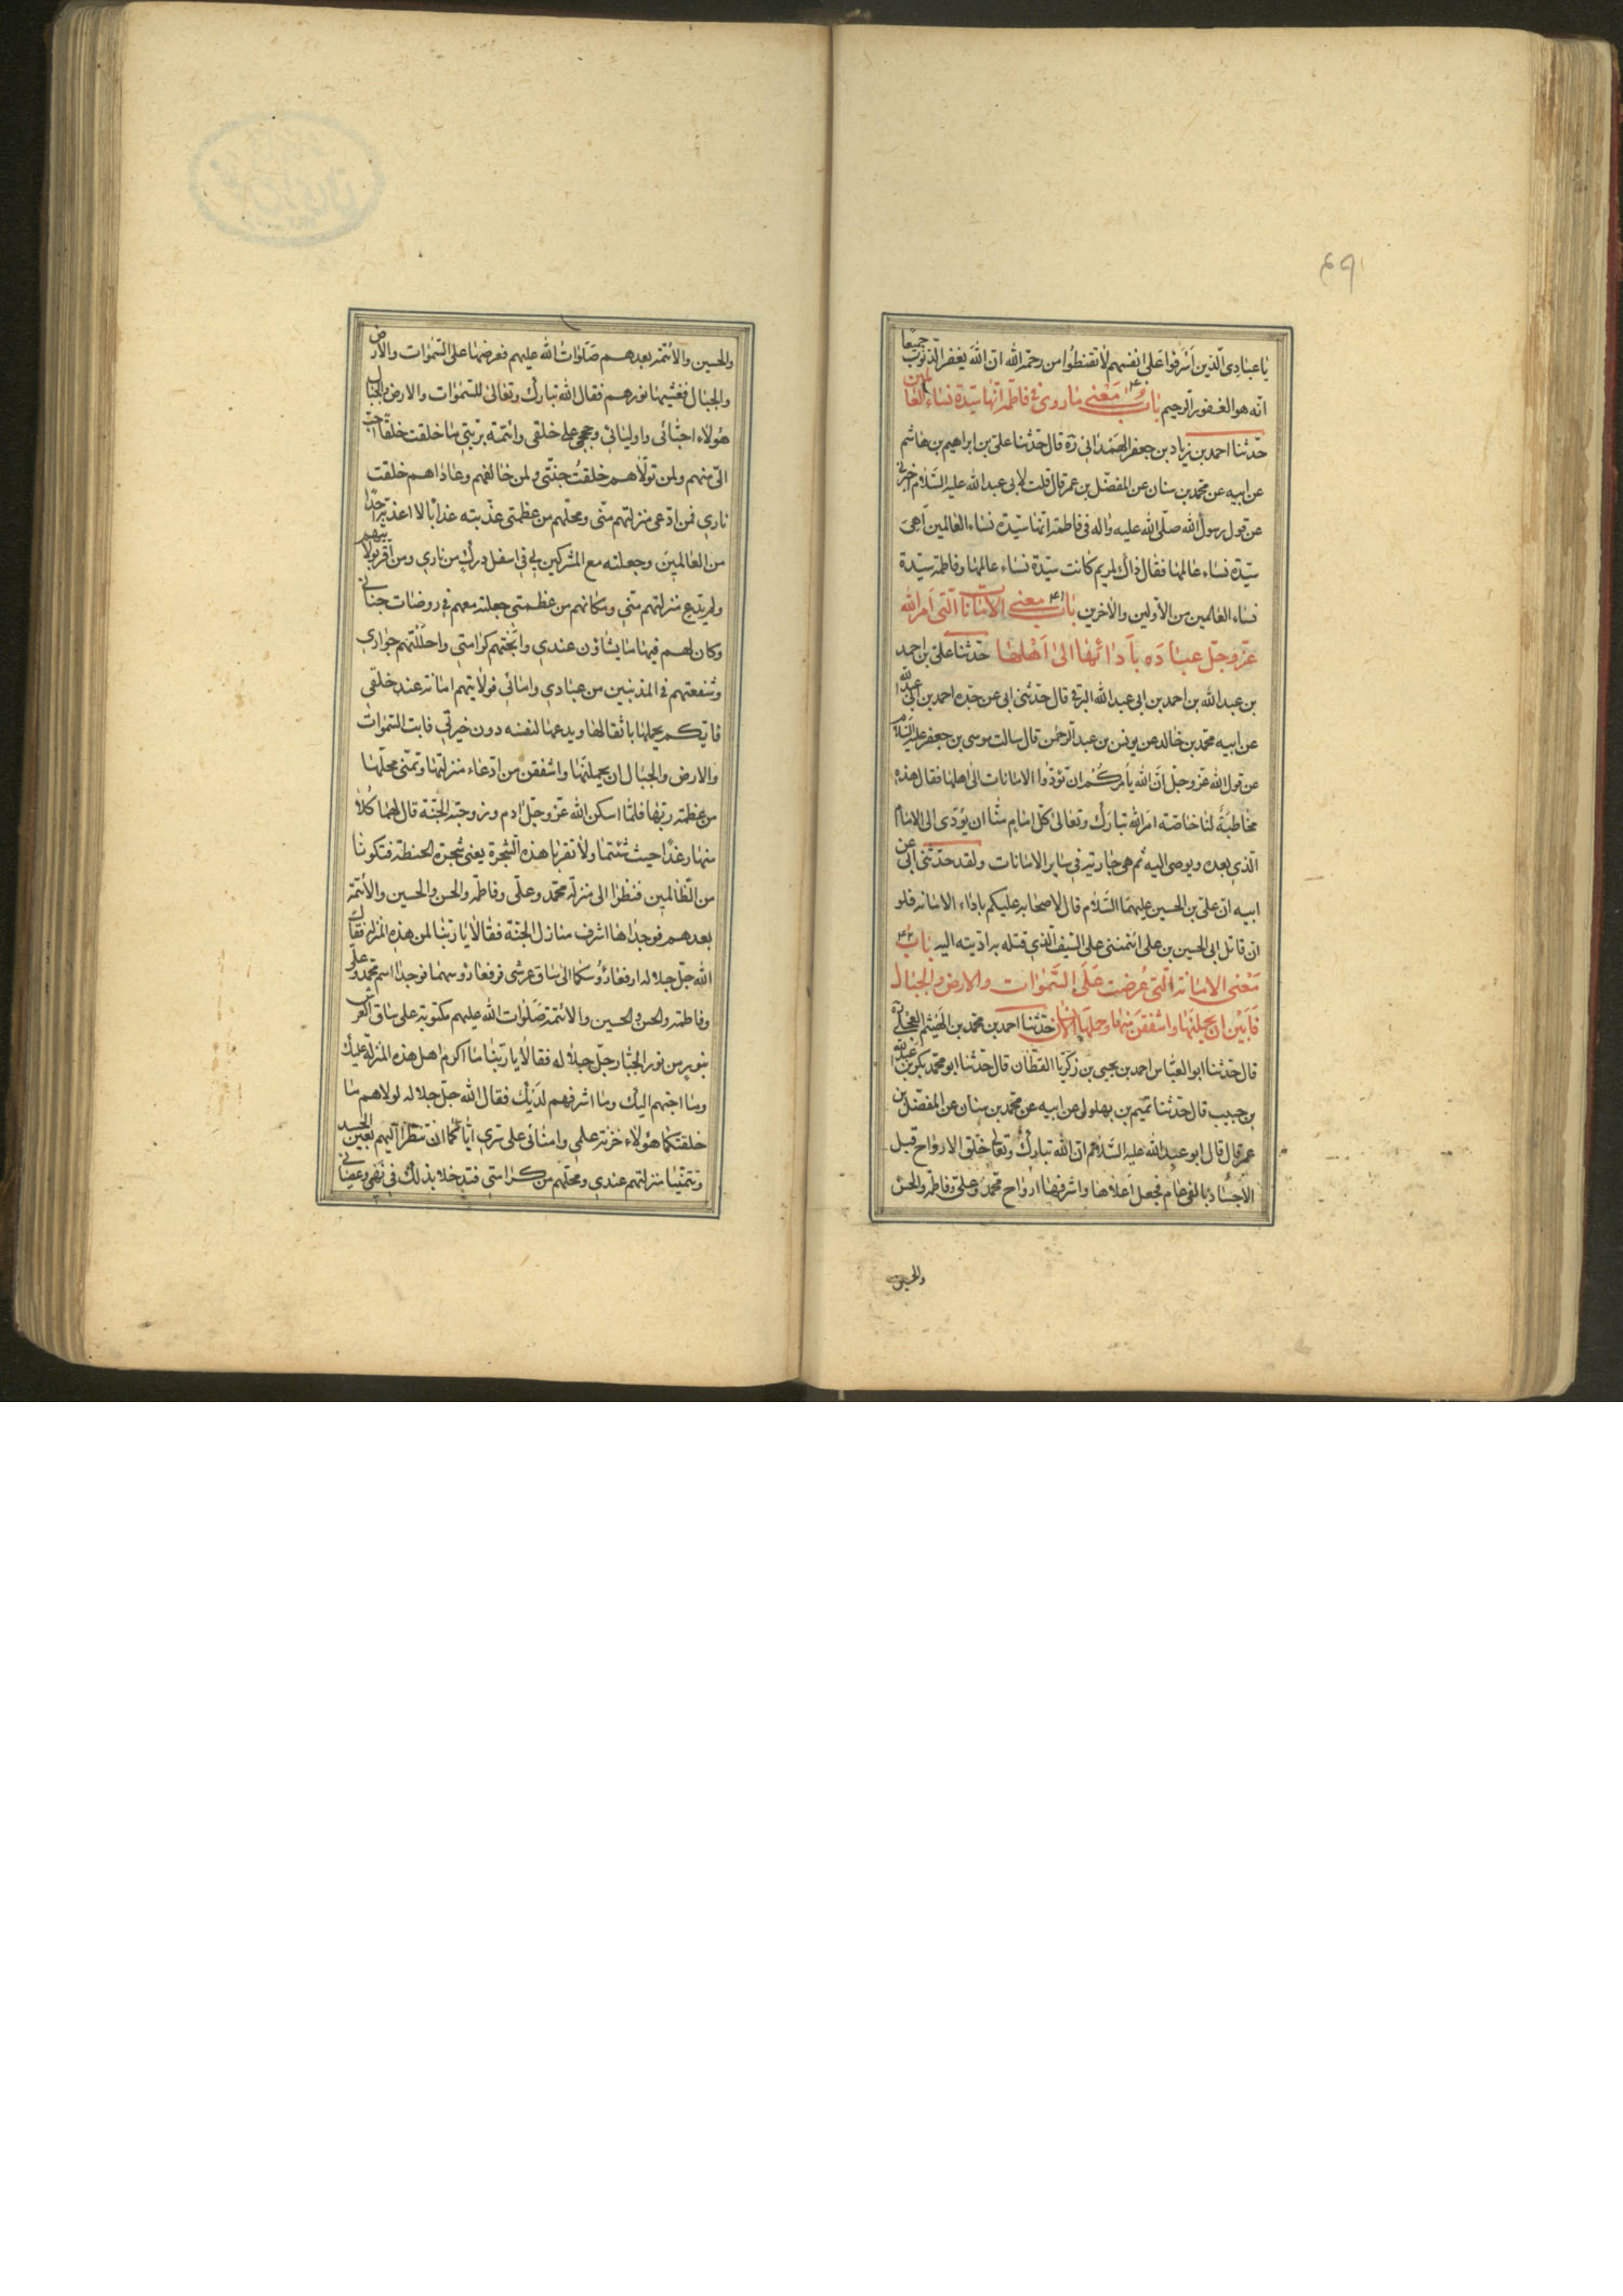 ۶۹
يا عبادي الذين اسرفوا على انفسهم لا تقنطوا من رحمة الله ان الله يغفر الذنوب جميعا
انه هو الغفور الرحيم باب ۴۰ معنى ما روى في فاطمة انها سيدة نساء العالمين
حدثنا احمد بن زياد بن جعفر الهمداني ره قال حدثنا على بن ابراهيم بن هاشم
عن ابيه عن محمد بن سنان عن المفضل بن عمر قال قلت لابي عبد الله عليه السلام اخبرني
عن قول رسول الله صلى الله عليه واله في فاطمة انها سيدة نساء العالمين اهى
سيدة نساء عالمها فقال ذاك لمريم كانت سيدة نساء عالمها وفاطمة سيدة
نساء العالمين من الاولين والاخرين باب ۴۱ معنى الامانات التى امر الله
عز وجل عباده بادائها الى اهلها حدثنا على بن احمد
بن عبد الله بن احمد بن ابى عبد الله البرقي قال حدثنى ابى عن جده احمد بن ابى عبد الله
عن ابيه محمد بن خالد عن يونس بن عبد الرحمن قال سالت موسى بن جعفر عليه السلام
عن قول الله عز وجل ان الله يأمركم ان تؤدوا الامانات الى اهلها فقال هذه
مخاطبة لنا خاصة امر الله تبارك وتعالى كل امام منا ان يؤدى الى الامام
الذي بعده ويوصى اليه ثم هى جارية في ساير الامانات ولقد حدثنى ابى عن
ابيه ان على بن الحسين عليهما السلام قال لاصحابه عليكم باداء الامانة فلو
ان قاتل ابى الحسين بن على ائتمننى على السيف الذي قتله به لاديته اليه باب ۴۲
معنى الامانة التى عرضت على السموات والارض والجبال
فابين ان يحملنها واشفقن منها وحملها الانسان حدثنا احمد بن محمد بن الهيثم العجلي ره
قال حدثنا ابو العباس احمد بن يحيى بن زكريا القطان قال حدثنا ابو محمد بكر بن عبد الله
بن حبيب قال حدثنا تميم بن بهلول عن ابيه عن محمد بن سنان عن المفضل بن
عمر قال قال ابو عبد الله عليه السلام ان الله تبارك وتعالى خلق الارواح قبل
الاجساد بالفى عام فجعل اعلاها واشرفها ارواح محمد وعلى وفاطمة والحسن
والحسين
والحسين والائمة بعدهم صلوات الله عليهم فعرضها على السموات والارض
والجبال فغشيها نورهم فقال الله تبارك وتعالى للسموات والارض والجبال
هؤلاء احبائى واوليائي وحججى على خلقى وائمة بريتي ما خلقت خلقا احب
الى منهم ولمن تولاهم خلقت جنتى ولمن خالفهم وعاداهم خلقت
ناري فمن ادعى منزلتهم منى ومحلهم من عظمتي عذبته عذابا لا اعذبه احدا
من العالمين وجعلته مع المشركين في اسفل درك من ناري ومن اقر بولايتهم
ولم يدع منزلتهم منى ومكانهم من عظمتى جعلته معهم في روضات جناتي
وكان لهم فيها ما يشاؤن عندي وابحتهم كرامتي واحللتهم جواري
وشفعتهم في المذنبين من عبادي وامائي فولايتهم امانة عند خلقي
فايكم يحملها باثقالها ويدعيها لنفسه دون خيرتي فابت السموات
والارض والجبال ان يحملنها واشفقن من ادعاء منزلتها وتمنى محلها
من عظمة ربها فلما اسكن الله عز وجل ادم وزوجته الجنة قال لهما كلا
منها رغدا حيث شئتما ولا تقربا هذه الشجرة يعنى شجرة الحنطة فتكونا
من الظالمين فنظرا الى منزلة محمد وعلى وفاطمة والحسن والحسين والائمة
بعدهم فوجداها اشرف منازل الجنة فقالا يا ربنا لمن هذه المنزلة فقال
الله جل جلاله ارفعا رؤسكما الى ساق عرشى فرفعا رؤسهما فوجدا اسم محمد وعلى
وفاطمة والحسن والحسين والائمة صلوات الله عليهم مكتوبة على ساق العرش
بنور من نور الجبار جل جلاله فقالا يا ربنا ما اكرم اهل هذه المنزلة عليك
وما احبهم اليك وما اشرفهم لديك فقال الله جل جلاله لولاهم ما
خلقتكما هؤلاء خزنة علمي وامنائى على سري اياكما ان تنظرا اليهم بعين الحسد
وتتمنيا منزلتهم عندي ومحلهم من كرامتي فتدخلا بذلك في نهيي وعصياني